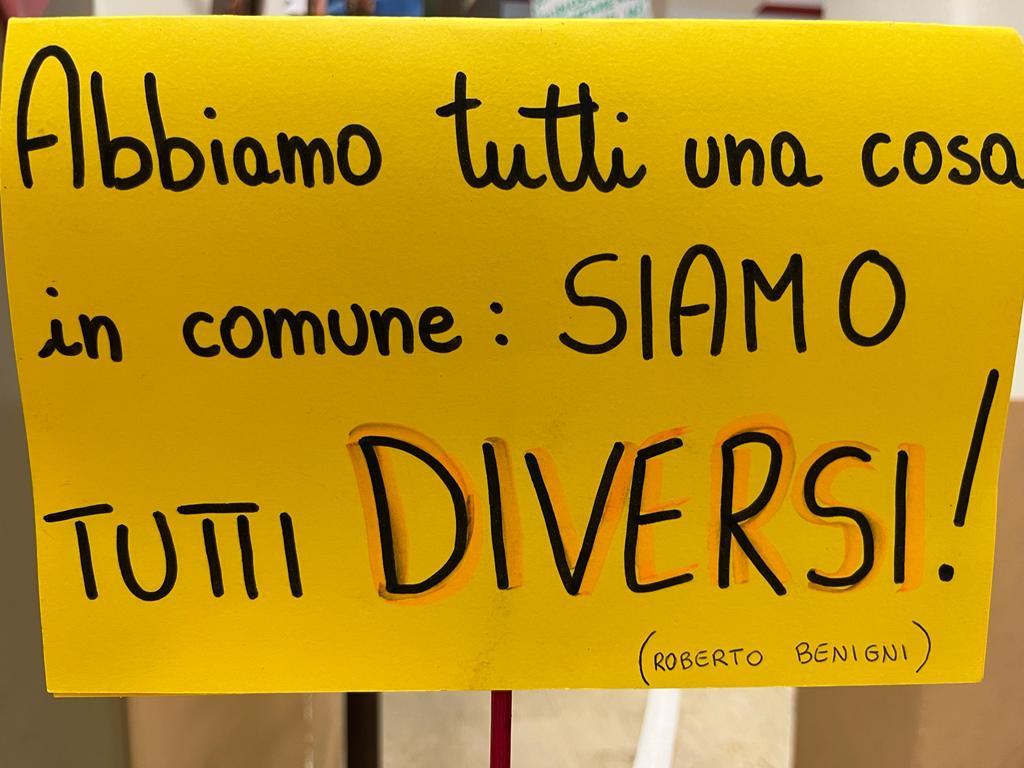 Abbiamo tutti una cosa
in comune: SIAMO
TUTTI DIVERSI!
(ROBERTO BENIGNI)